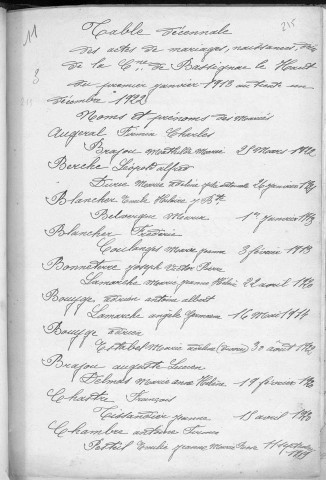 11
215
Table décennale
des actes de mariages, naissances, décès
de la Cne de Bassignac le Haut
du premier janvier 1913 au trente un
3
décembre 1922
Noms et prénoms des Mariés
Augeral Firmin Charles
Brajou Mathilde Marie 25 Mars 1922
Berche Léopold alfred
Marie 26 janvier
Blancher Emile
1er janvier
Blancher Frédéric
Coulanges Marie jeanne 3 février 1913
Bonneture joseph Victor Pierre
Lamarche Marie jeanne 22 avril 1920
Bouyge adrien antoine albert
Lamarche angèle 16 Mai 1914
Bouyge adrien
Marie 30 août
Brajou auguste Lucien
Delmas Marie anna Hélène 19 février
Chastre François
Tissandier jeanne 15 avril
Chambre antoine Firmin
Emilie jeanne Marie 11 septembre
1919